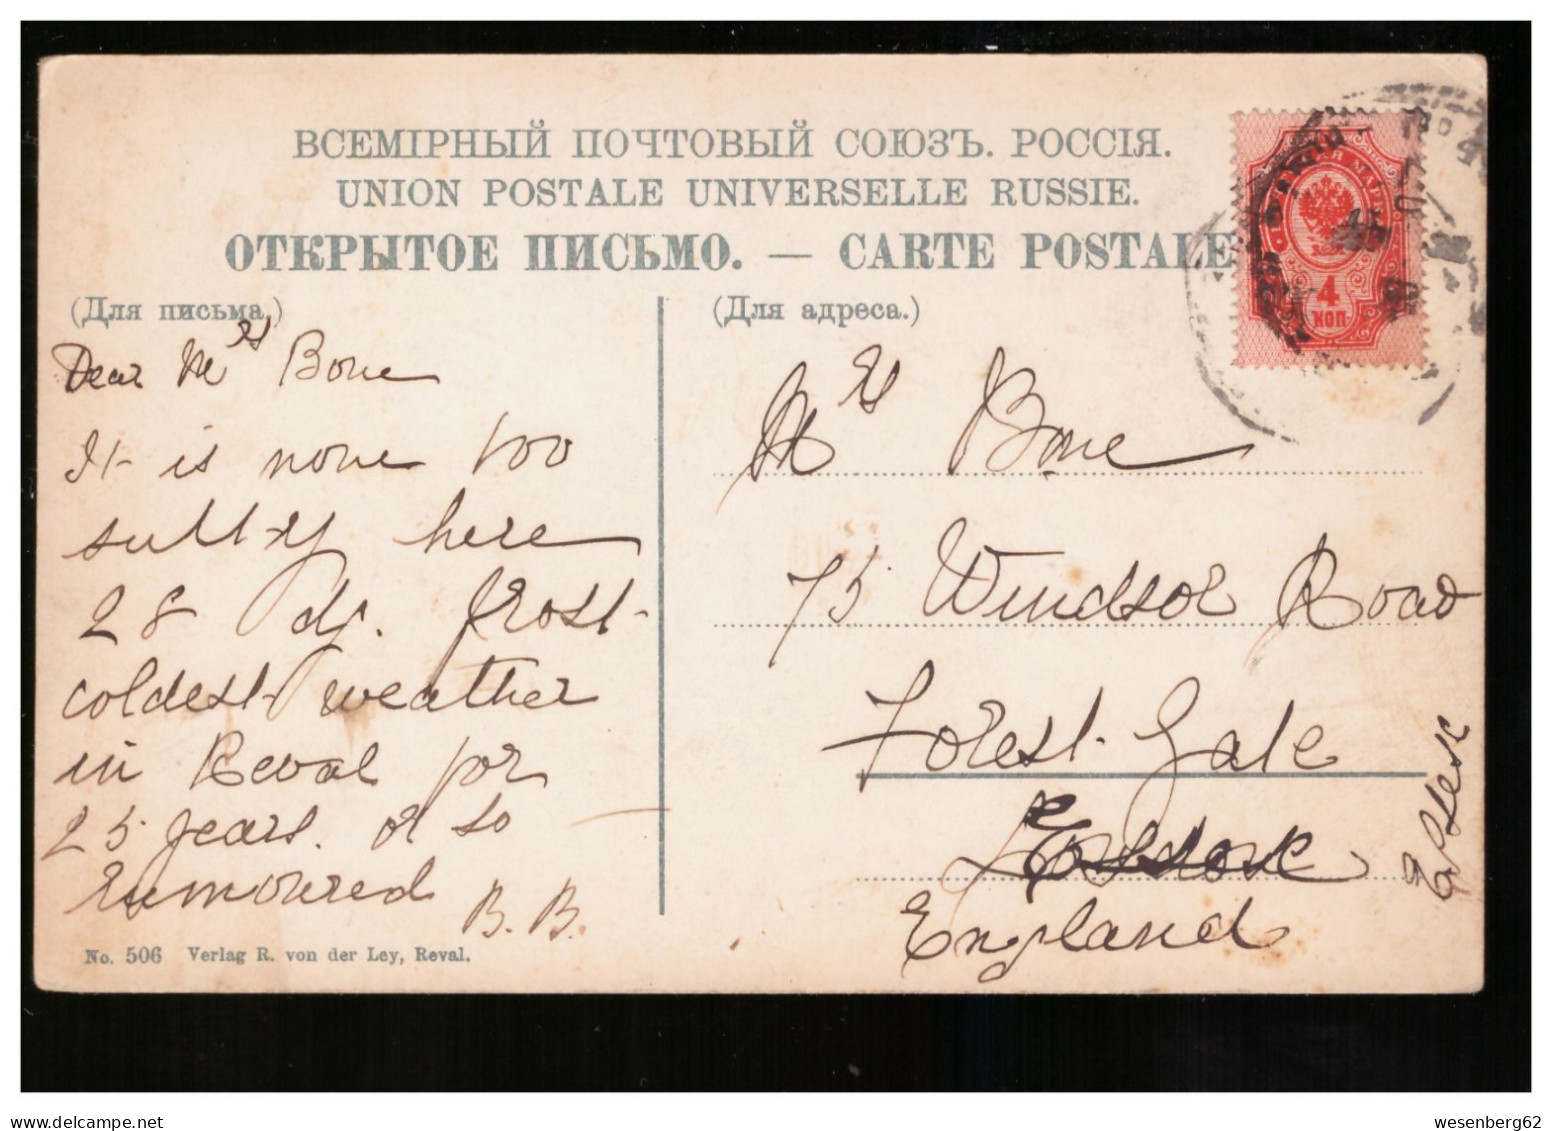 ВСЕМІРНЫЙ ПОЧТОВЫЙ СОЮЗЪ. РОССІЯ.
UNION POSTALE UNIVERSELLE RUSSIE.
ОТКРЫТОЕ ПИСЬМО. — CARTE POSTALE
(Для письма)
Dear Mrs Bone
It is none too
sultry here
28 dg. frost
coldest weather
in Reval for
25 years. or so
rumoured
B. B.
No. 506 Verlag R. von der Ley, Reval.
(Для адреса.)
Mrs Bone
75 Windsor Road
Forest Gate
England
Essex
4
КОП.
wesenberg62